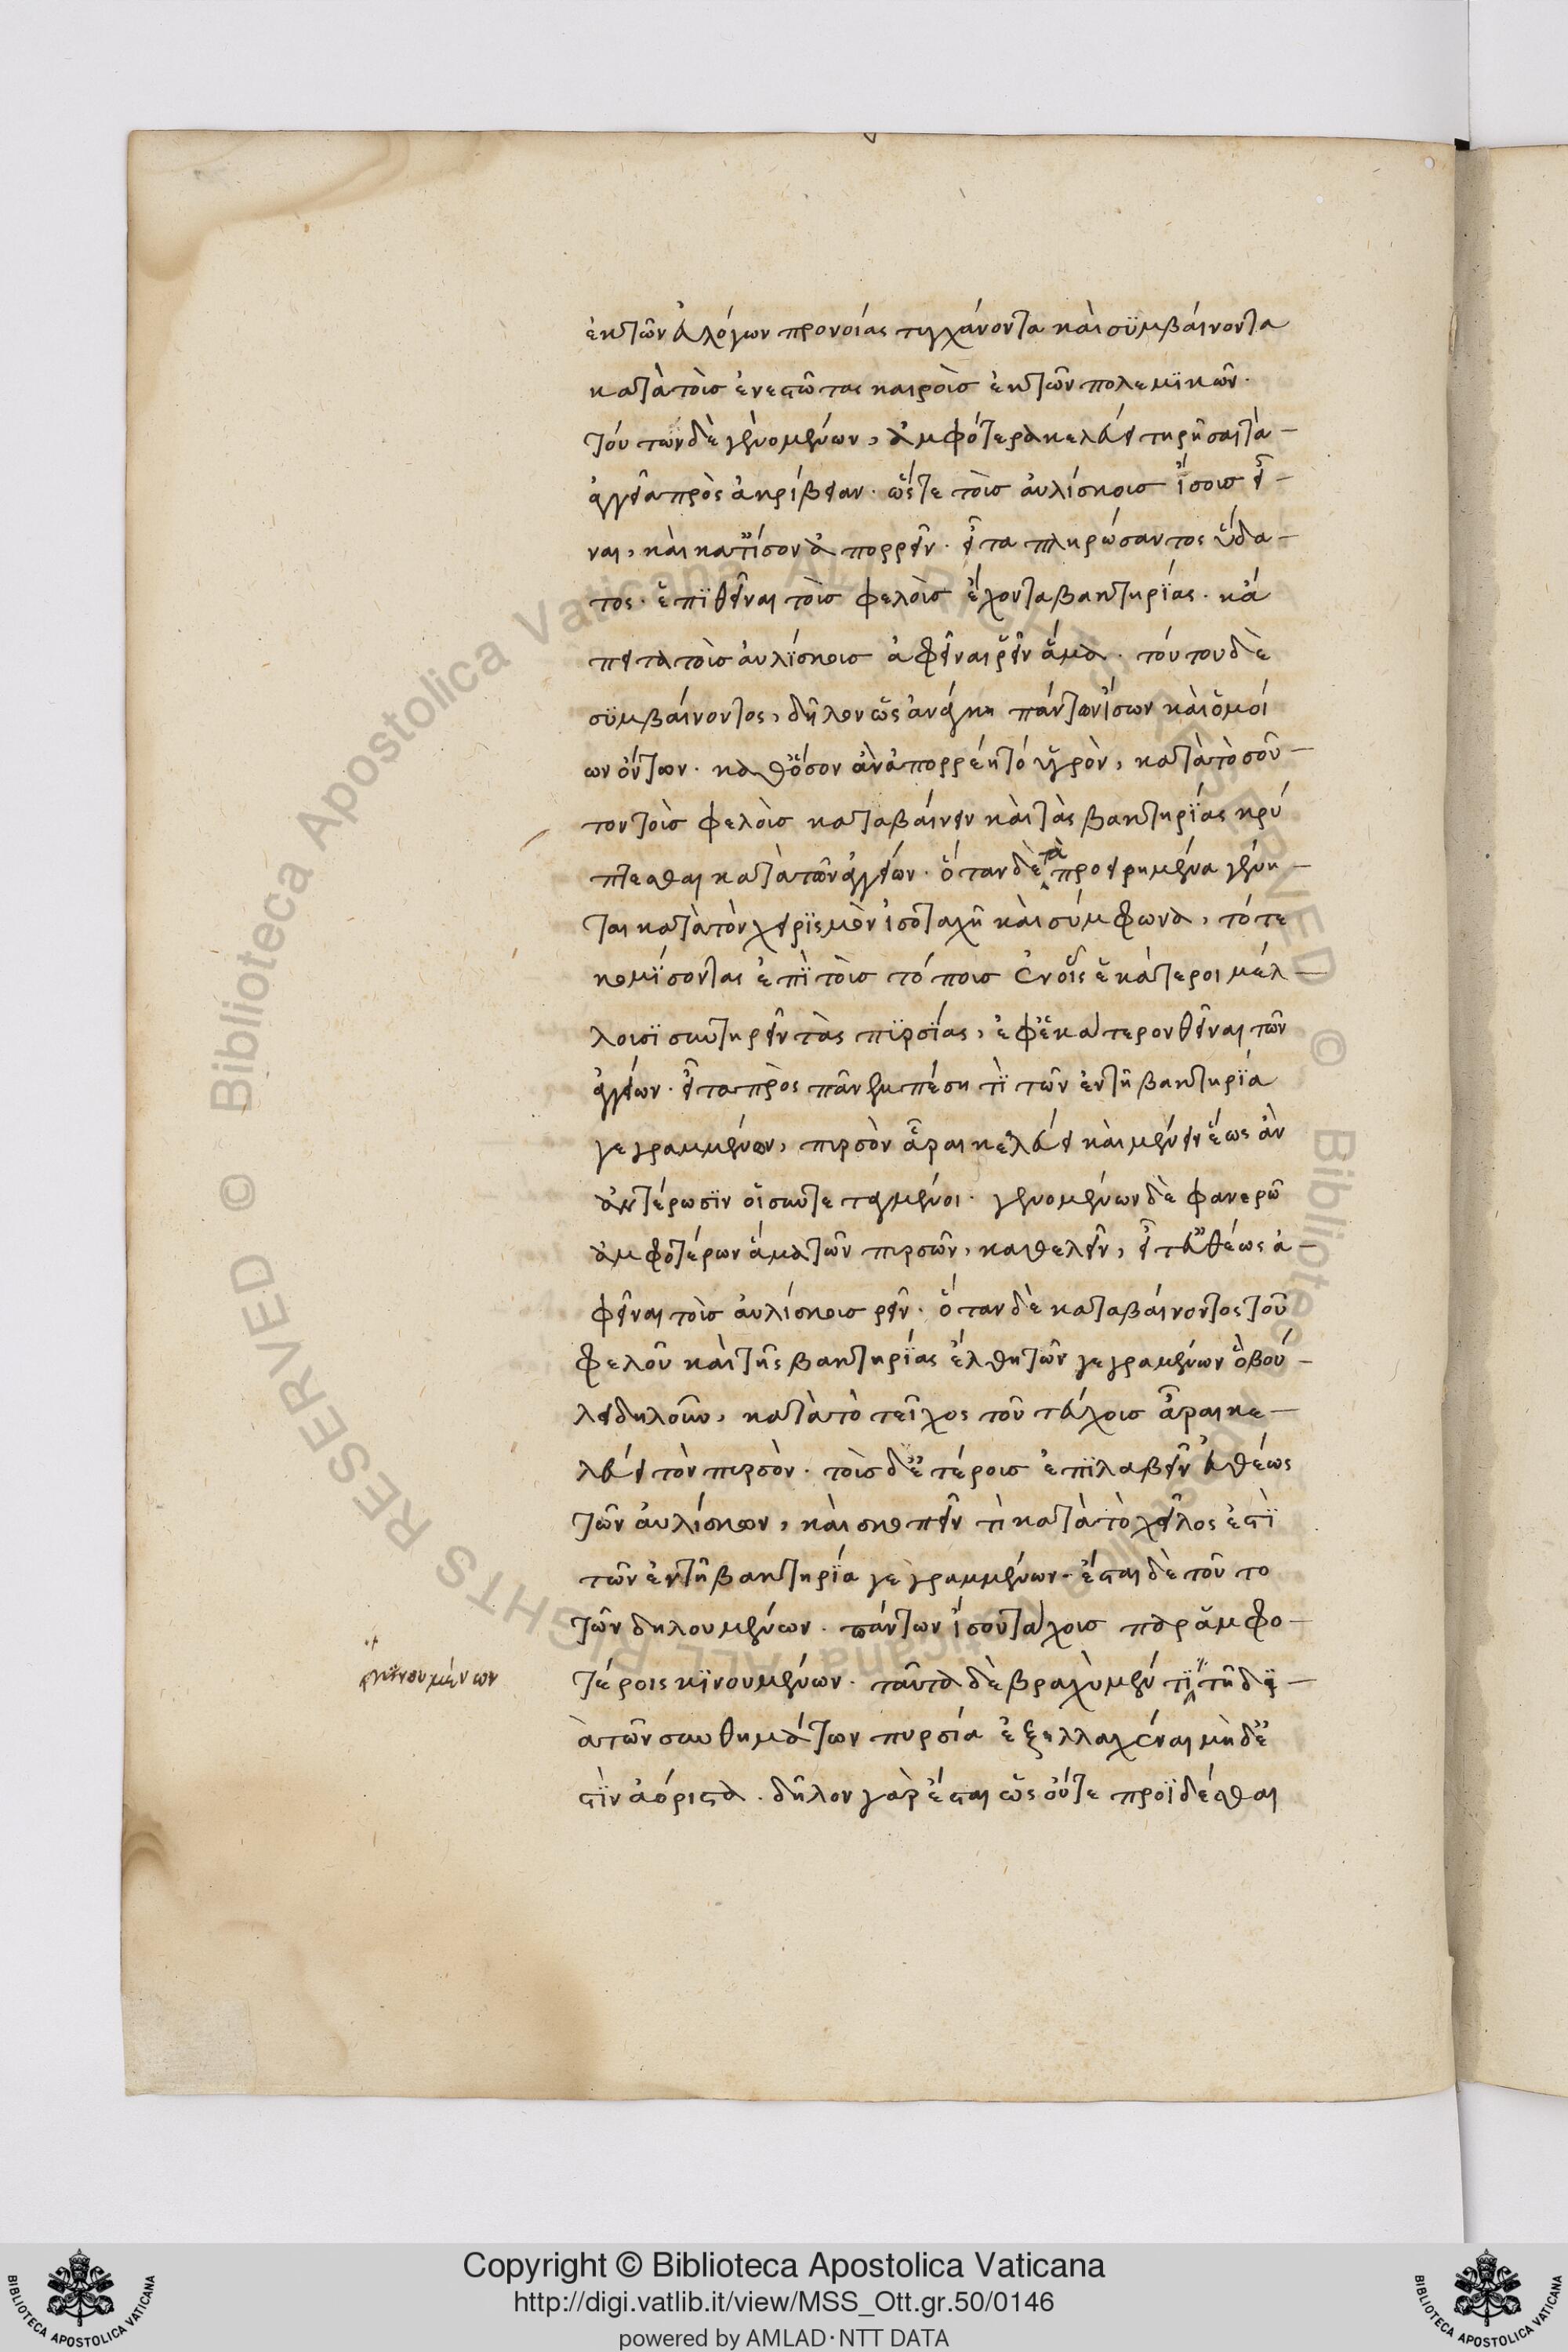 ἐκ τῶν εὐλόγων προνοίας τυγχάνοντα καὶ συμβαίνοντα
κατὰ τοὺς ἐνεστῶτας καιροὺς ἐκ τῶν πολεμικῶν.
τούτων δὲ γενομένων, ἀμφότερα κελεύει τηρῆσαι τὰ
ἀγγεῖα πρὸς ἀκρίβειαν. ὥστε τοὺς αὐλίσκους ἴσους εἶ-
ναι, καὶ κατ' ἴσον ἀπορρεῖν. εἶτα πληρώσαντας ὕδα-
τος. ἐπιθεῖναι τοὺς φελοὺς ἔχοντα βακτηρίας. κἄ
πειτα τοὺς αὐλίσκους ἀφεῖναι ῥεῖν ἅμα. τούτου δὲ
συμβαίνοντος, δῆλον ὡς ἀνάγκη πάντων ἴσων καὶ ὁμοί
ων ὄντων. καθ' ὅσον ἂν ἀπορρέη τὸ ὑγρὸν, κατὰ τοσοῦ-
τον τοὺς φελοὺς καταβαίνειν καὶ τὰς βακτηρίας κρύ
πτεσθαι κατὰ τῶν ἀγγείων. ὅταν δὲ τὰ προειρημένα γένη-
ται κατὰ τὸν χειρισμὸν ἰσοταχῆ καὶ σύμφωνα, τότε
κομίσοντας ἐπὶ τοὺς τόπους ἐν οἷς ἑκάτεροι μέλ-
λουσι συντηρεῖν τὰς πυρσίας, ἐφ' ἑκάτερον θεῖναι τῶν
ἀγγείων. εἶτα πρὸς πᾶν ἐμπέση τὶ τῶν ἐν τῆ βακτηρία
γεγραμμένων, πυρσὸν ἆραι κελεύει καὶ μένειν ἕως ἂν
ἀνταίρωσιν οἱ συντεταγμένοι. γενομένων δὲ φανερῶ
ἀμφοτέρων ἅμα τῶν πυρσῶν, καθελεῖν, εἶτ' εὐθέως ἀ-
φεῖναι τοὺς αὐλίσκους ῥεῖν. ὅταν δὲ καταβαίνοντος τοῦ
φελοῦ καὶ τῆς βακτηρίας ἔλθη τῶν γεγραμένων ὃ βού-
λει δηλοῦν, κατὰ τὸ τεῖχος τοῦ τεύχους ἆραι κε-
λεύει τὸν πυρσὸν. τοὺς δ' ἑτέρους ἐπιλαβεῖν εὐθέως
τῶν αὐλίσκων, καὶ σκοπεῖν τὶ κατὰ τὸ χεῖλος ἐστὶ
τῶν ἐν τῆ βακτηρία γεγραμμένων. ἔσται δὲ τοῦτο
τῶν δηλουμένων. πάντων ἰσουταχοις παρ' ἀμφο-
τέροις κινουμένων. ταῦτα δὲ βραχὺ μέν τι τῆ δι-
ὰ τῶν συνθημάτων πυρσία ἐξελλαχέναι μὴ δ' ἔ
στιν ἀόριστα. δῆλον γὰρ ἔσται ὡς οὔτε προϊδέσθαι
κινουμένων
Copyright © Biblioteca Apostolica Vaticana
http://digi.vatlib.it/view/MSS_Ott.gr.50/0146
powered by AMLAD·NTT DATA